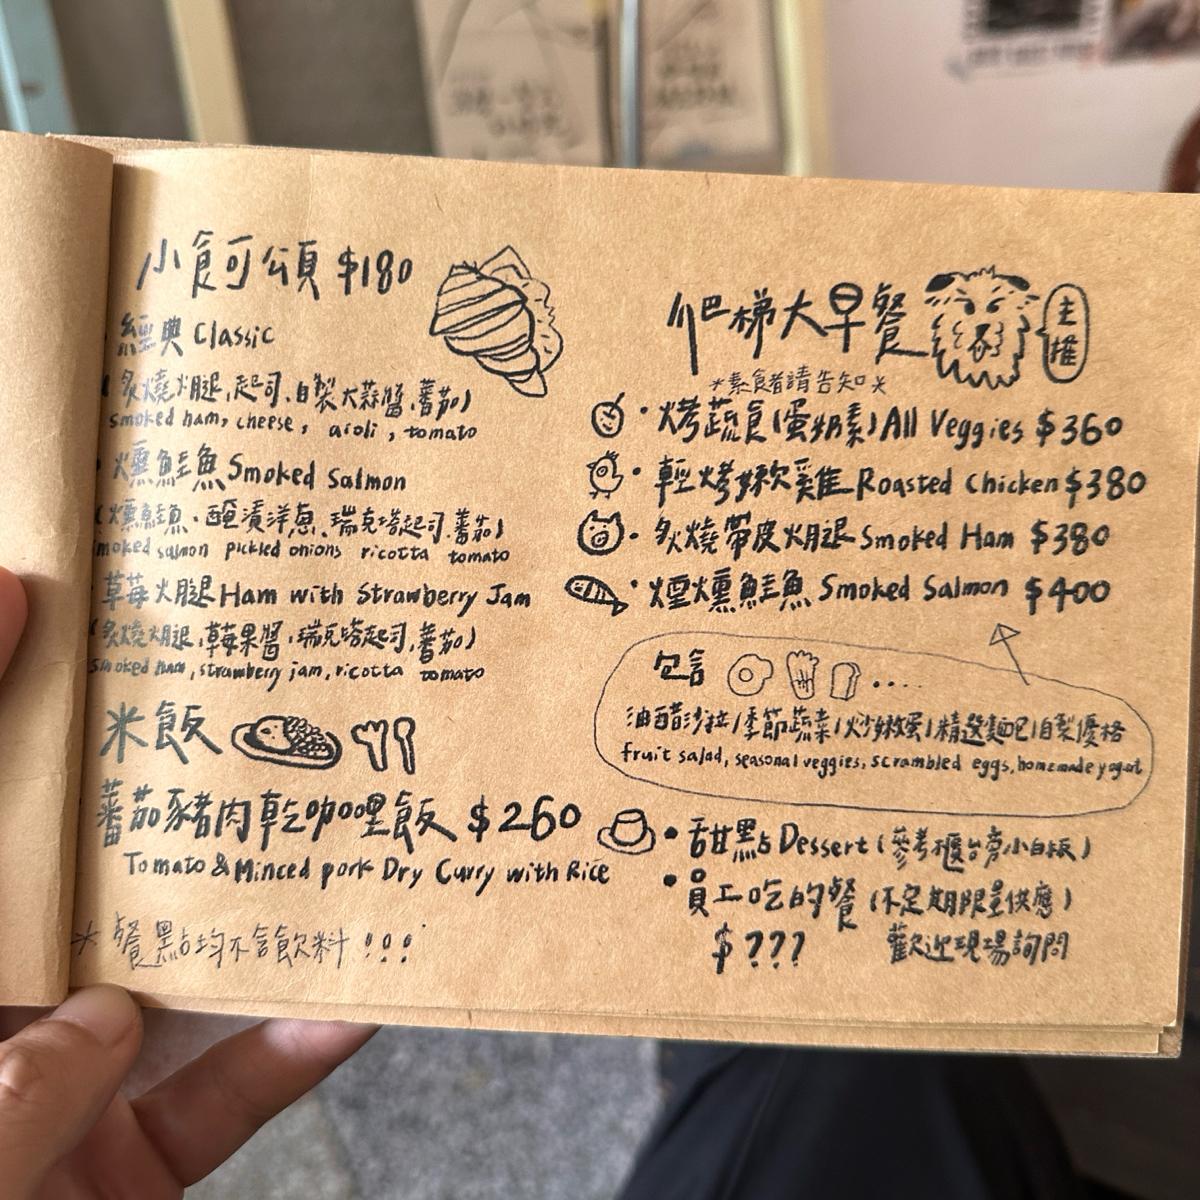 小食可頌 $180
· 經典 Classic
(炙燒火腿、起司、自製大蒜醬、蕃茄)
smoked ham, cheese, aioli, tomato
· 燻鮭魚 Smoked Salmon
(燻鮭魚、醃漬洋蔥、瑞克塔起司、蕃茄)
smoked salmon pickled onions ricotta tomato
· 草莓火腿 Ham with Strawberry Jam
(炙燒火腿、草莓果醬、瑞克塔起司、蕃茄)
smoked ham, strawberry jam, ricotta tomato
米飯
蕃茄豬肉乾咖哩飯 $260
Tomato & Minced pork Dry Curry with Rice
* 餐點均不含飲料!!!
爬梯大早餐
主推
*素食者請告知*
· 烤蔬食(蛋奶素) All Veggies $360
· 輕烤嫩雞 Roasted Chicken $380
· 炙燒帶皮火腿 Smoked Ham $380
· 煙燻鮭魚 Smoked Salmon $400
包含 ....
油醋沙拉/季節蔬菜/炒嫩蛋/精選麵包/自製優格
fruit salad, seasonal veggies, scrambled eggs, homemade yogurt
· 甜點 Dessert (參考櫃台旁小白板)
· 員工吃的餐 (不定期限量供應)
$??? 歡迎現場詢問